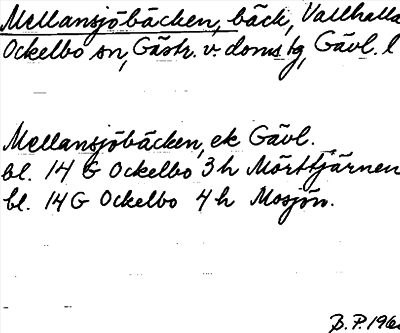 Mellansjöbäcken, bäck, Vallhalla
Ockelbo sn, Gästr. v. doms tg, Gävl. l
Mellansjöbäcken, ek Gävl.
bl. 14 G Ockelbo 3 h Mörttjärnen
bl. 14 G Ockelbo 4 h Mosjön.
B. P. 196